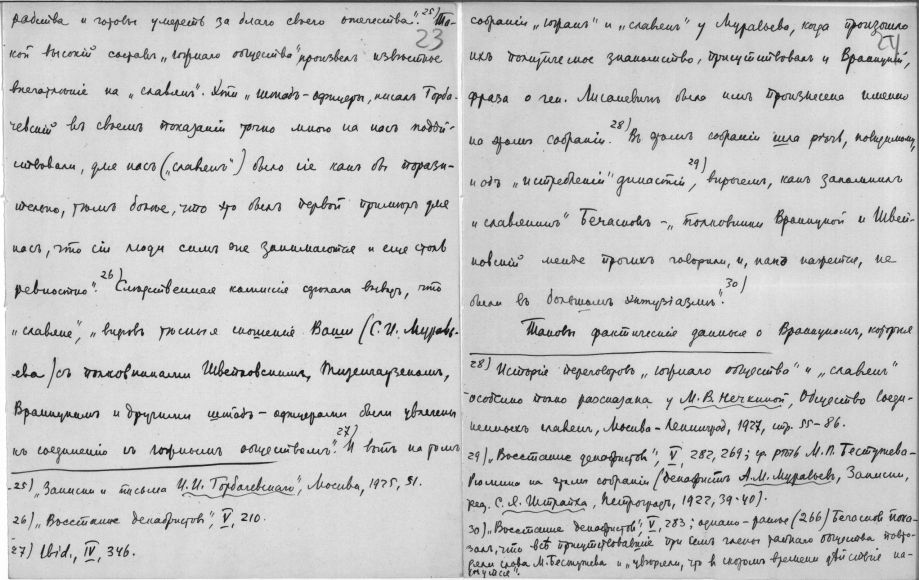 23
рабства и готовы умереть за благо своего отечества".25) Та-
кой высокий составъ „южнаго общества" произвелъ известное
впечатление на „славянъ". Хотя „штабъ-офицеры, писалъ Горба-
чевский въ своемъ показании точно много на насъ подѣй-
ствовали, для насъ („славянъ") было сие какъ бы порази-
тельно, тѣмъ более, что это былъ первой примѣръ для
насъ, что сии люди симъ же занимаются и еще столь
ревностно".26) Следственная комиссия сделала выводъ, что
„славяне", „видевъ тѣсныя сношения Ваши (С. И. Муравь-
ева) съ полковниками Швейковскимъ, Тизенгаузеномъ,
Враницкимъ и другими штабъ-офицерами были увлечены
къ соединению съ южнымъ обществомъ".27) И вотъ на томъ
25) „Записки и письма И.И. Горбачевскаго", Москва, 1925, 51.
26) „Восстание декабристов", V, 210.
27) Ibid., IV, 346.
24
собрании „южан" и „славян" у Муравьева, когда произошло
ихъ политическое знакомство, присутствовалъ и Враницкий,
фраза о ген. Лисаневичѣ была имъ произнесена именно
на этомъ собрании.28) Въ этомъ собрании шла рѣчь, повидимому,
и объ „истреблении" династии,29) впрочемъ, какъ запомнилъ
„славянинъ" Бечасновъ — „полковники Враницкой и Швей-
ковский менее прочихъ говорили, и, какъ кажется, не
были въ большомъ энтузиазмѣ".30)
Таковы фактические данные о Враницкомъ, которые
28) История переговоровъ „южнаго общества" и „славян"
особенно полно рассказана у М. В. Нечкиной, Общество Соеди-
ненныхъ славянъ, Москва-Ленинград, 1927, стр. 55-86.
29) „Восстание декабристов", V, 282, 269; ср. рѣчь М. П. Бестужева-
Рюмина на этомъ собрании (Декабристъ А.М. Муравьев, Записки,
ред. С. Я. Штрайха, Петроградъ, 1922, 39-40).
30) „Восстание декабристов", V, 283; однако — ранее (266) Бечасной пока-
залъ, что всѣ присутствовавшие при семъ члены южнаго общества повто-
ряли слова М. Бестужева и „уверяли, что в скоромъ времени дѣйствие на-